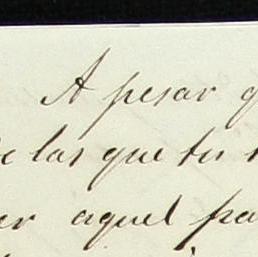 A pesar q
de las que tu
er aquel pa